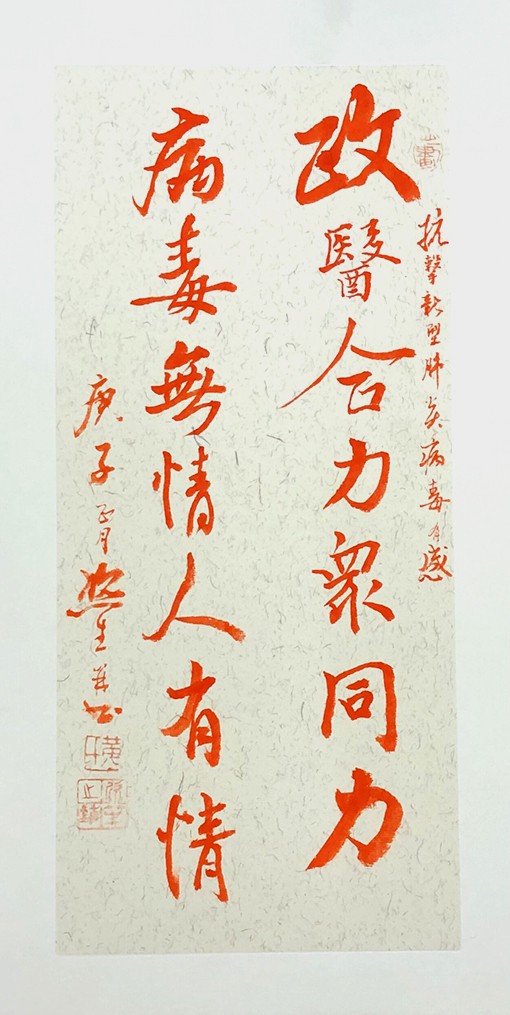 抗擊新型肺炎病毒有感
政醫合力衆同力
病毒無情人有情
庚子正月
生並書